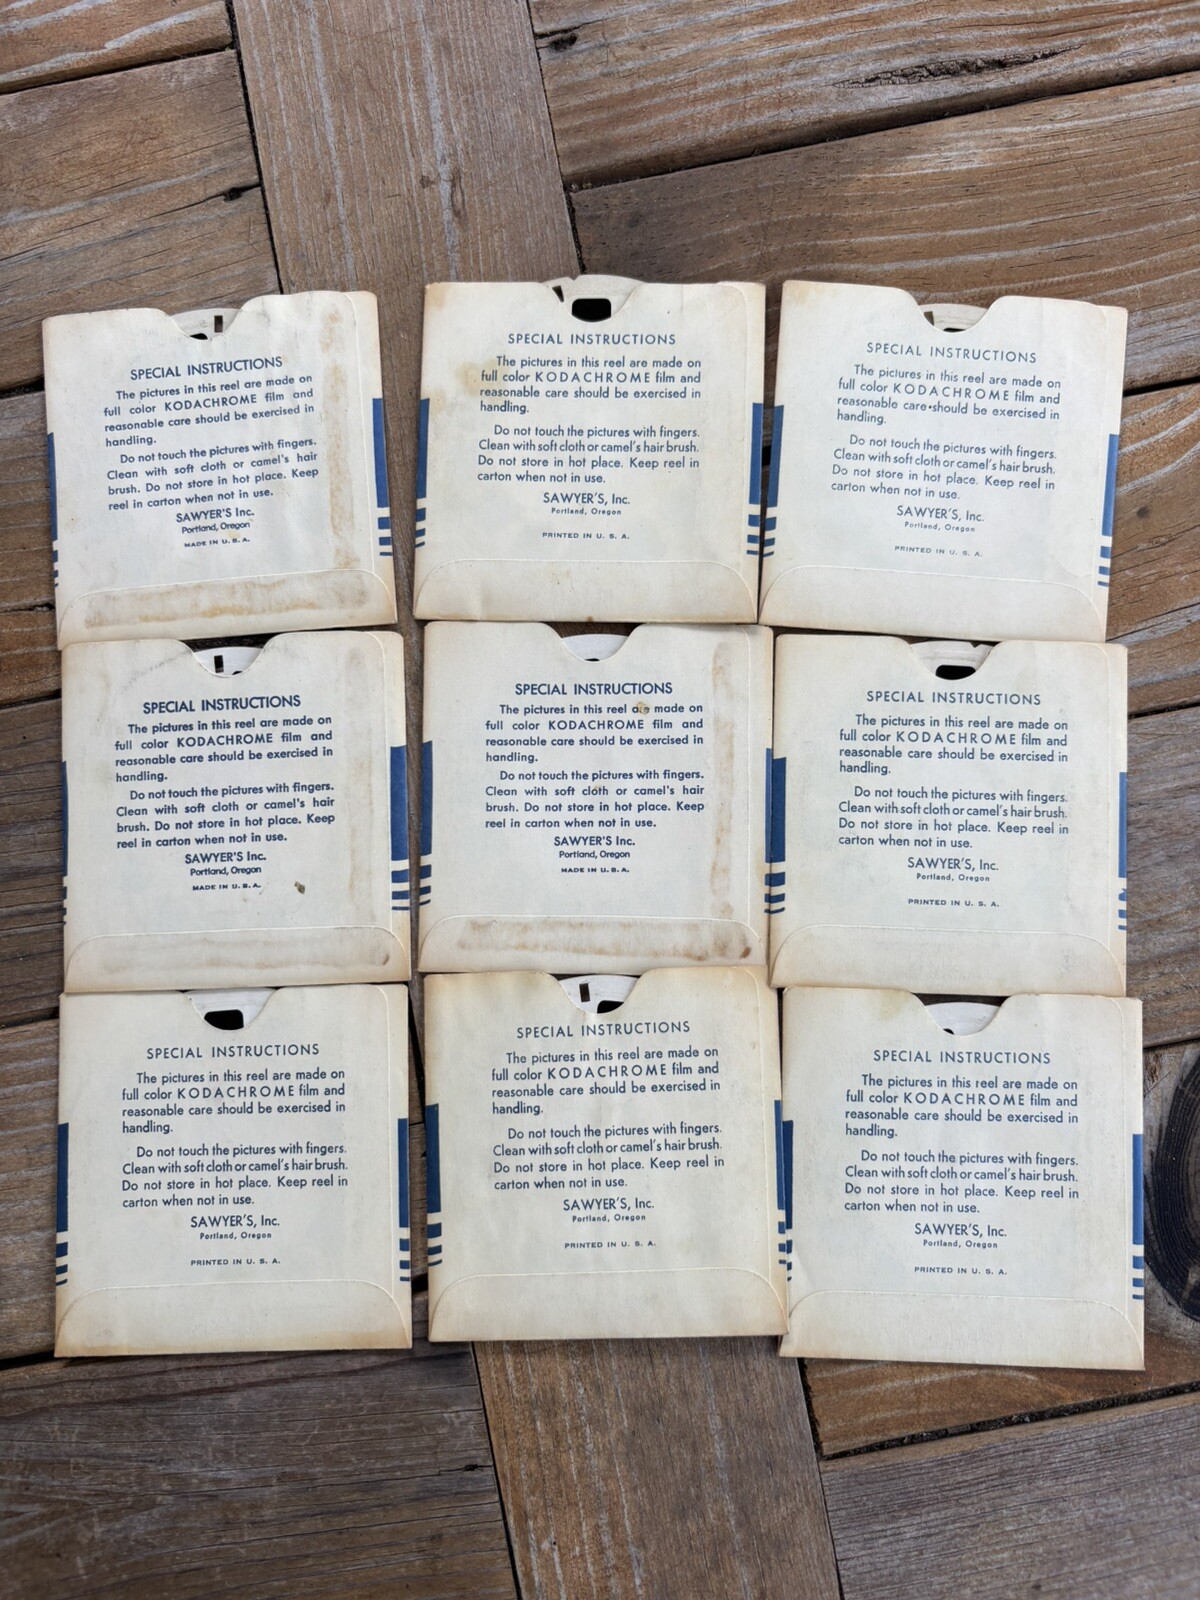 SPECIAL INSTRUCTIONS
The pictures in this reel are made on
full color KODACHROME film and
reasonable care should be exercised in
handling.
Do not touch the pictures with fingers.
Clean with soft cloth or camel's hair
brush. Do not store in hot place. Keep
reel in carton when not in use.
SAWYER'S Inc.
Portland, Oregon
MADE IN U.S.A.
SPECIAL INSTRUCTIONS
The pictures in this reel are made on
full color KODACHROME film and
reasonable care should be exercised in
handling.
Do not touch the pictures with fingers.
Clean with soft cloth or camel's hair brush.
Do not store in hot place. Keep reel in
carton when not in use.
SAWYER'S, Inc.
Portland, Oregon
PRINTED IN U. S. A.
SPECIAL INSTRUCTIONS
The pictures in this reel are made on
full color KODACHROME film and
reasonable care should be exercised in
handling.
Do not touch the pictures with fingers.
Clean with soft cloth or camel's hair brush.
Do not store in hot place. Keep reel in
carton when not in use.
SAWYER'S, Inc.
Portland, Oregon
PRINTED IN U. S. A.
SPECIAL INSTRUCTIONS
The pictures in this reel are made on
full color KODACHROME film and
reasonable care should be exercised in
handling.
Do not touch the pictures with fingers.
Clean with soft cloth or camel's hair
brush. Do not store in hot place. Keep
reel in carton when not in use.
SAWYER'S Inc.
Portland, Oregon
MADE IN U.S.A.
SPECIAL INSTRUCTIONS
The pictures in this reel are made on
full color KODACHROME film and
reasonable care should be exercised in
handling.
Do not touch the pictures with fingers.
Clean with soft cloth or camel's hair
brush. Do not store in hot place. Keep
reel in carton when not in use.
SAWYER'S Inc.
Portland, Oregon
MADE IN U.S.A.
SPECIAL INSTRUCTIONS
The pictures in this reel are made on
full color KODACHROME film and
reasonable care should be exercised in
handling.
Do not touch the pictures with fingers.
Clean with soft cloth or camel's hair brush.
Do not store in hot place. Keep reel in
carton when not in use.
SAWYER'S, Inc.
Portland, Oregon
PRINTED IN U. S. A.
SPECIAL INSTRUCTIONS
The pictures in this reel are made on
full color KODACHROME film and
reasonable care should be exercised in
handling.
Do not touch the pictures with fingers.
Clean with soft cloth or camel's hair brush.
Do not store in hot place. Keep reel in
carton when not in use.
SAWYER'S, Inc.
Portland, Oregon
PRINTED IN U. S. A.
SPECIAL INSTRUCTIONS
The pictures in this reel are made on
full color KODACHROME film and
reasonable care should be exercised in
handling.
Do not touch the pictures with fingers.
Clean with soft cloth or camel's hair brush.
Do not store in hot place. Keep reel in
carton when not in use.
SAWYER'S, Inc.
Portland, Oregon
PRINTED IN U. S. A.
SPECIAL INSTRUCTIONS
The pictures in this reel are made on
full color KODACHROME film and
reasonable care should be exercised in
handling.
Do not touch the pictures with fingers.
Clean with soft cloth or camel's hair brush.
Do not store in hot place. Keep reel in
carton when not in use.
SAWYER'S, Inc.
Portland, Oregon
PRINTED IN U. S. A.